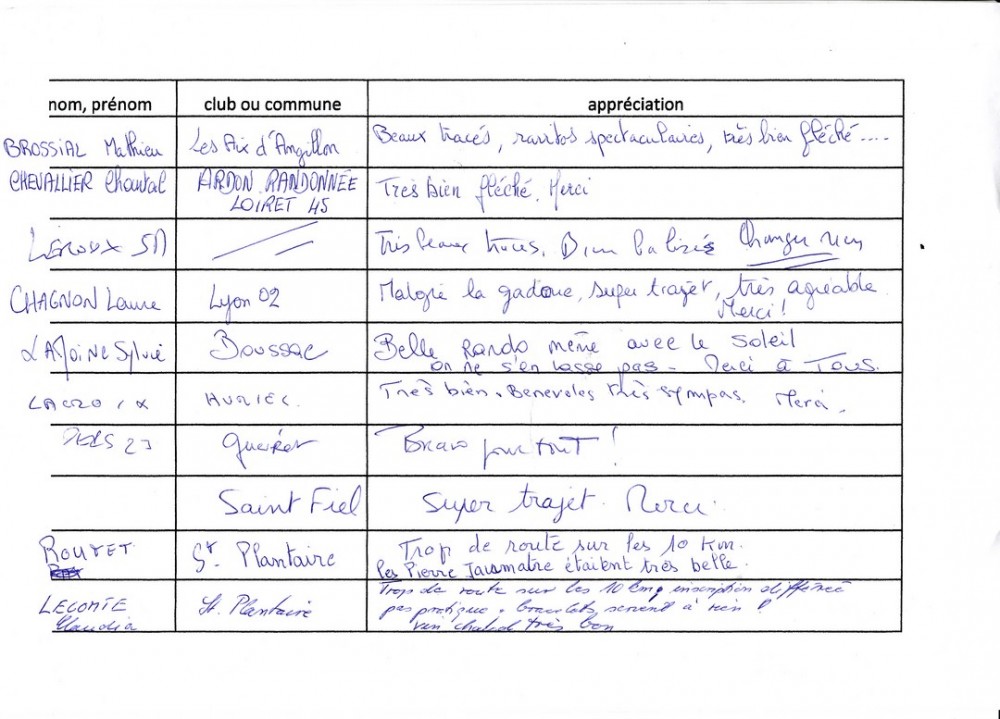 nom, prénom club ou commune appréciation
BROSSIAL Mathieu Les Aix d'Angillon Beaux tracés, ravitos spectaculaires, très bien fléché....
CHEVALLIER Chantal ARDON RANDONNÉE Très bien fléché. Merci
LOIRET 45
LEROUX Très beaux traces. Bien balisés Changer rien
CHAGNON Laure Lyon 02 Malgré la gadoue, super trajet, très agréable.
Merci!
LAMoine Sylvie Boussac Belle rando même avec le soleil
on ne s'en lasse pas - Merci à Tous.
LACROIX HURIEL. Très bien. Benevoles très sympas. Merci.
23 Guéret Bravo pour tout!
Saint Fiel Super trajet. Merci.
ROUYET St. Plantaire Trop de route sur les 10 Km.
les Pierre Jaumatre étaient très belle.
LECONTE St. Plantaire Trop de route sur les 10 kmp inscription différencé
Claudia pas pratique. bracelets servent à rien!
vin chaud très bon